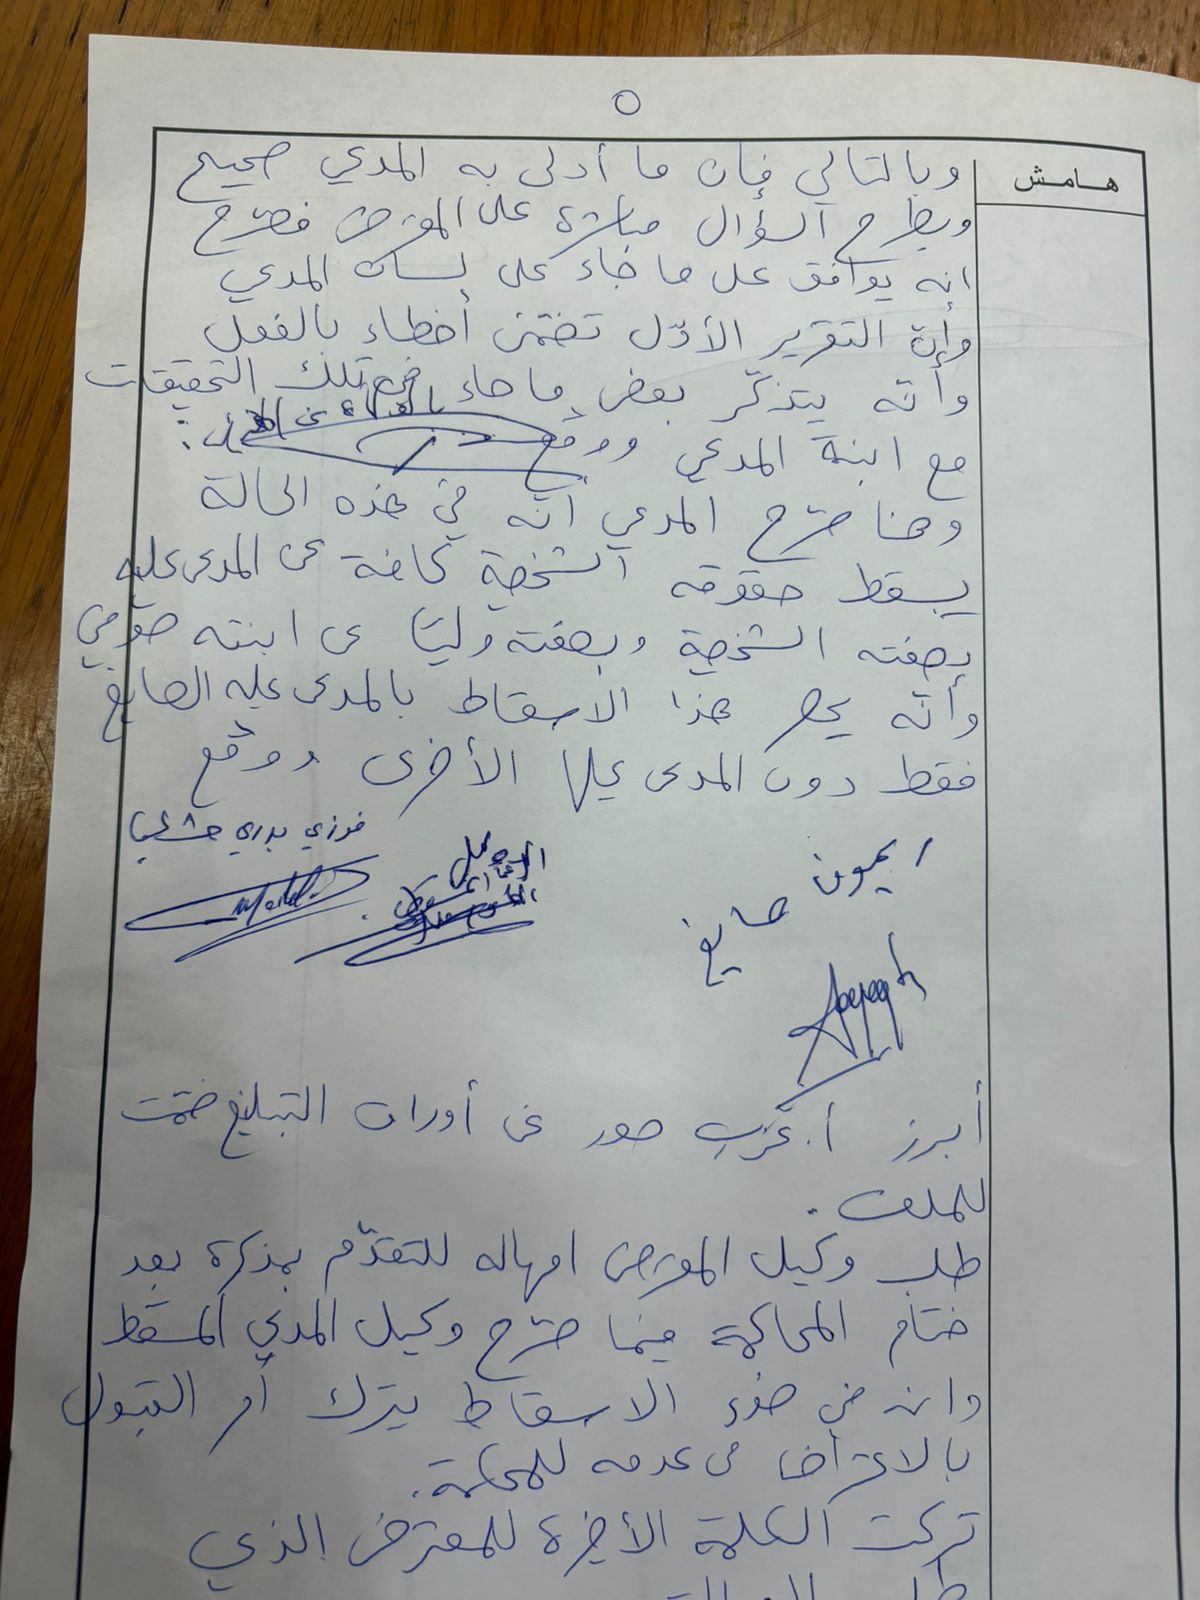 ٥
هامش
وبالتالي فإن ما أدلى به المدعي صحيح
وبطرح السؤال مباشرة على المعترض فصرّح
انه يوافق على ما جاء على لسان المدعي
وأن التقرير الأوّل تضمّن أخطاء بالفعل
وأنّه يتذكّر بعض ما جاء في تلك التحقيقات
مع ابنة المدعي ووقع
وهنا صرّح المدعي أنّه في هذه الحالة
يسقط حقوقه الشخصية كافة عن المدعى عليه
بصفته الشخصية وبصفته وليّا عن ابنته
وأنّه يحصر هذا الاسقاط بالمدعى عليه الصايغ
فقط دون المدعى عليها الأخرى ووقّع
فوزي بدري
ريمون صايغ
أبرز أ. صور عن أوراق التبليغ ضمّت
للملف.
طلب وكيل المعترض امهاله للتقدّم بمذكرة بعد
ختام المحاكمة فيما صرّح وكيل المدعي المسقط
وانه في ضوء الاسقاط يترك أمر القبول
بالاعتراض من عدمه للمحكمة.
تركت الكلمة الأخيرة للمعترض الذي
طلب